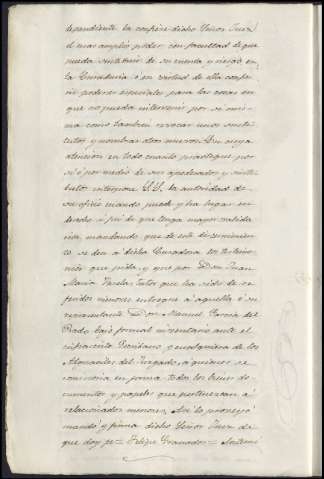 dependiente la confiere dicho Señor Juez
el mas amplio poder con facultad de que
pueda sustituir de su cuenta y riesgo en
la Curaduria ó en virtud de ella confe-
rir poderes especiales para las cosas en
que no pueda intervenir por si mis-
ma como tambien revocar unos susti-
tutos y nombrar otros nuevos. En cuya
atencion en todo cuanto practique por
si ó por medio de sus apoderados y susti-
tutos interpone S.S. la autoridad de
su oficio cuando puede y ha lugar en
derecho á fin de que tenga mayor valida-
cion, mandando que de este discernimien-
to se den á dicha Curadora los testimo-
nios que pida, y que por Don Juan
Maria Varela tutor que ha sido de re-
feridos menores entregue á aquella ó su
representante Don Manuel Garcia del
Prado bajo formal inventario ante el
infrascrito Escribano y cualquiera de los
Alguaciles del Juzgado, á quienes se
comisiona en forma todos los bienes do-
cumentos y papeles que pertenezcan á
relacionados menores. Asi lo proveyó
mandó y firma dicho Señor Juez de
que doy fe = Felipe Granados = Antemi